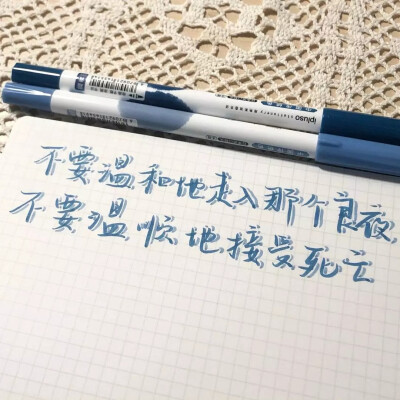 ipluso
不要温和地走入那个良夜,
不要温顺地接受死亡